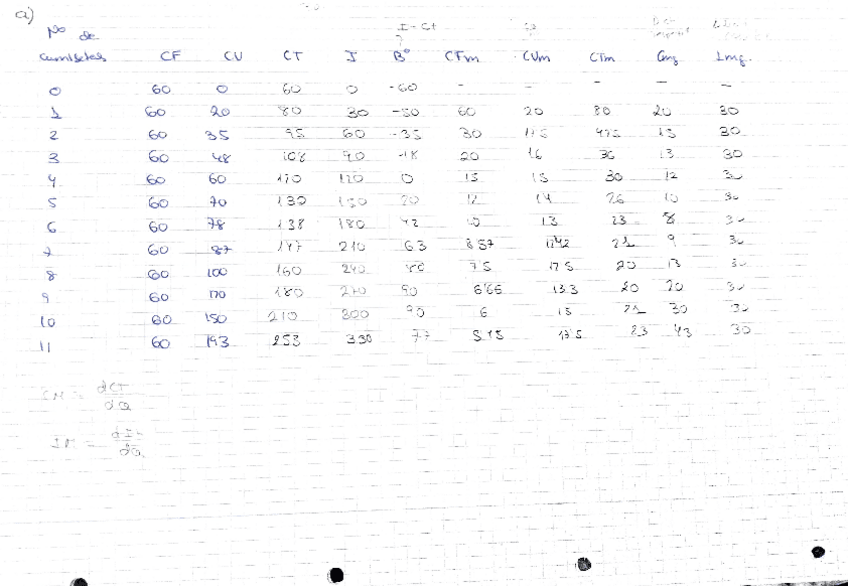 a)
I - Ct
Nº de
camisetas CF CU CT I Bº CFm CUm CTm Cmg Img.
0 60 0 60 0 -60 - - - - -
1 60 20 80 30 -50 60 20 80 20 30
2 60 35 95 60 -35 30 17'5 47'5 15 30
3 60 48 108 90 -18 20 16 36 13 30
4 60 60 120 120 0 15 15 30 12 30
5 60 70 130 150 20 12 14 26 10 30
6 60 78 138 180 42 10 13 23 8 30
7 60 87 147 210 63 8'57 12'42 21 9 30
8 60 100 160 240 80 7'5 12'5 20 13 30
9 60 120 180 270 90 6'66 13'3 20 20 30
10 60 150 210 300 90 6 15 21 30 30
11 60 193 253 330 77 5'45 17'5 23 43 30
CM = dCT
dQ
IM =
dQ